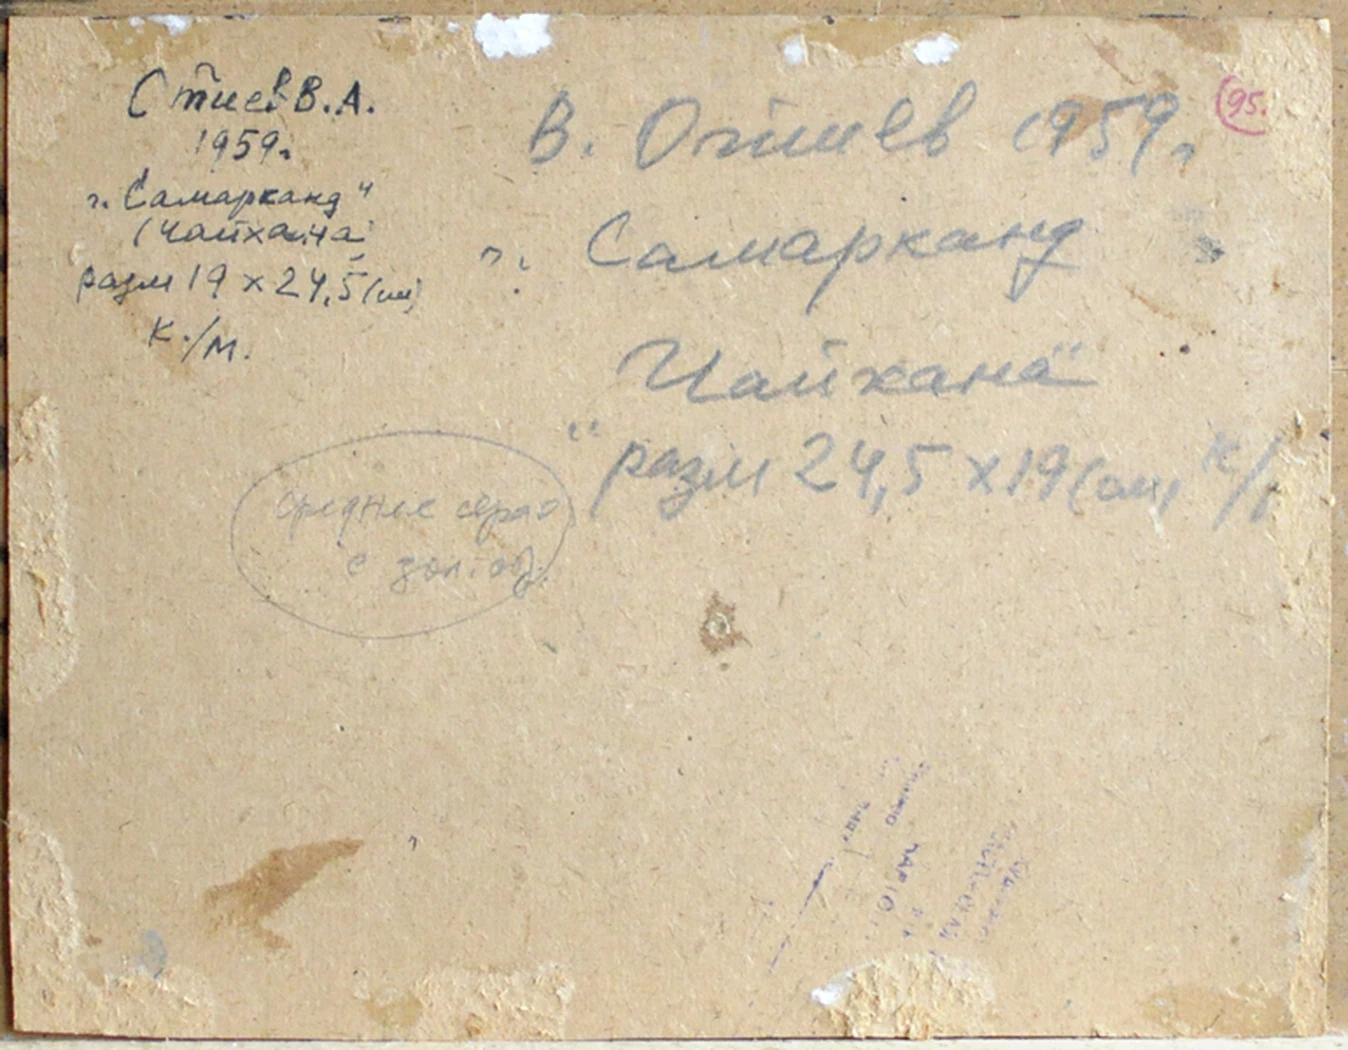 Стиев В.А.
1959г
г. Самарканд"
(Чайхана
разм 19 х 24,5 (см)
К./М.
В. Отиев 1959г
95.
г. Самарканд
Чайхана"
" разм 24,5 х 19 (см) К/
среднее
с зол.